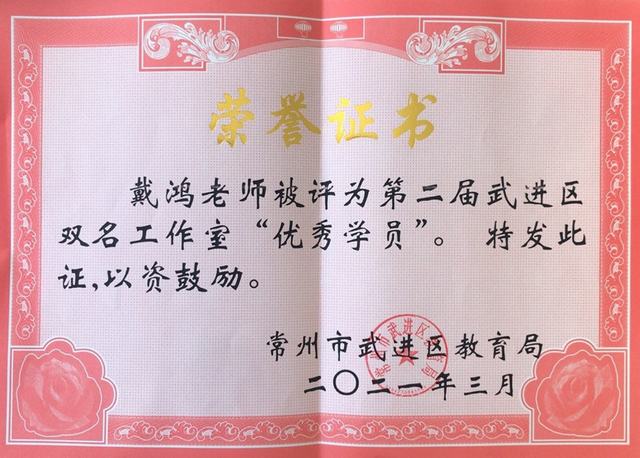 荣誉证书
戴鸿老师被评为第二届武进区
双名工作室“优秀学员”。 特发此
证,以资鼓励。
常州市武进区教育局
二〇二一年三月